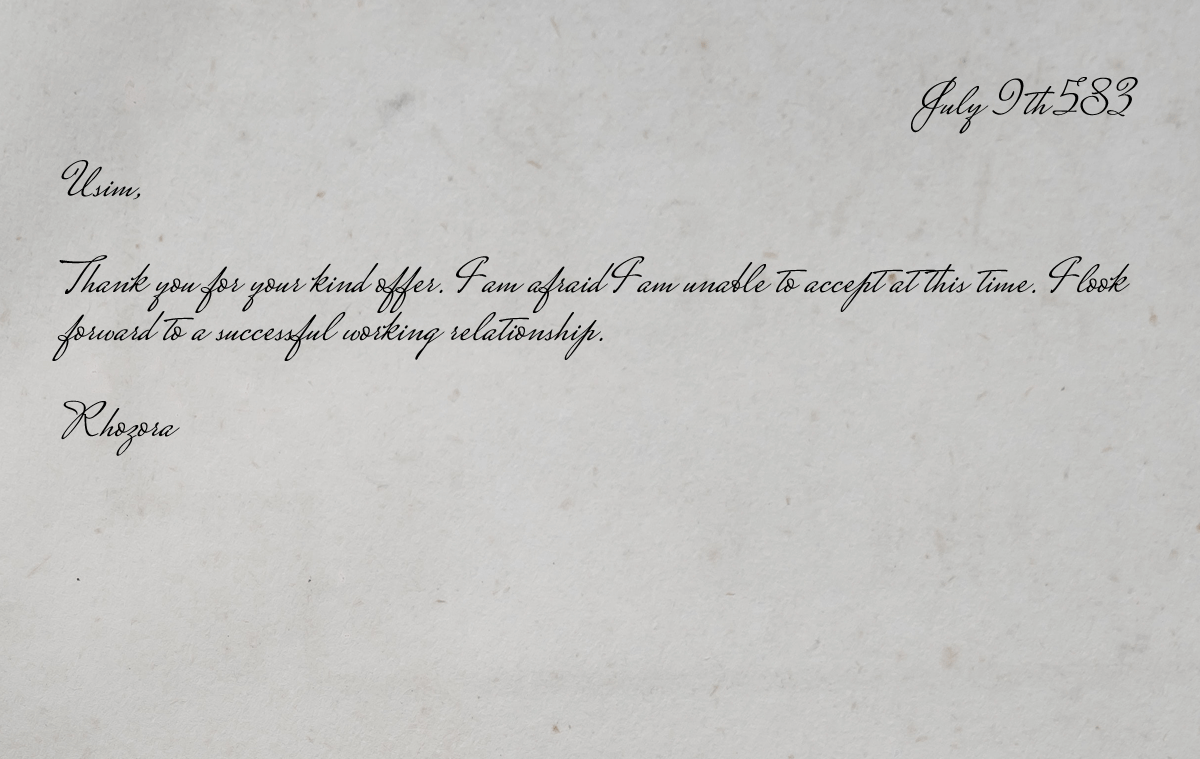 July 9th 583
Usim,
Thank you for your kind offer. I am afraid I am unable to accept at this time. I look
forward to a successful working relationship.
Rhozora